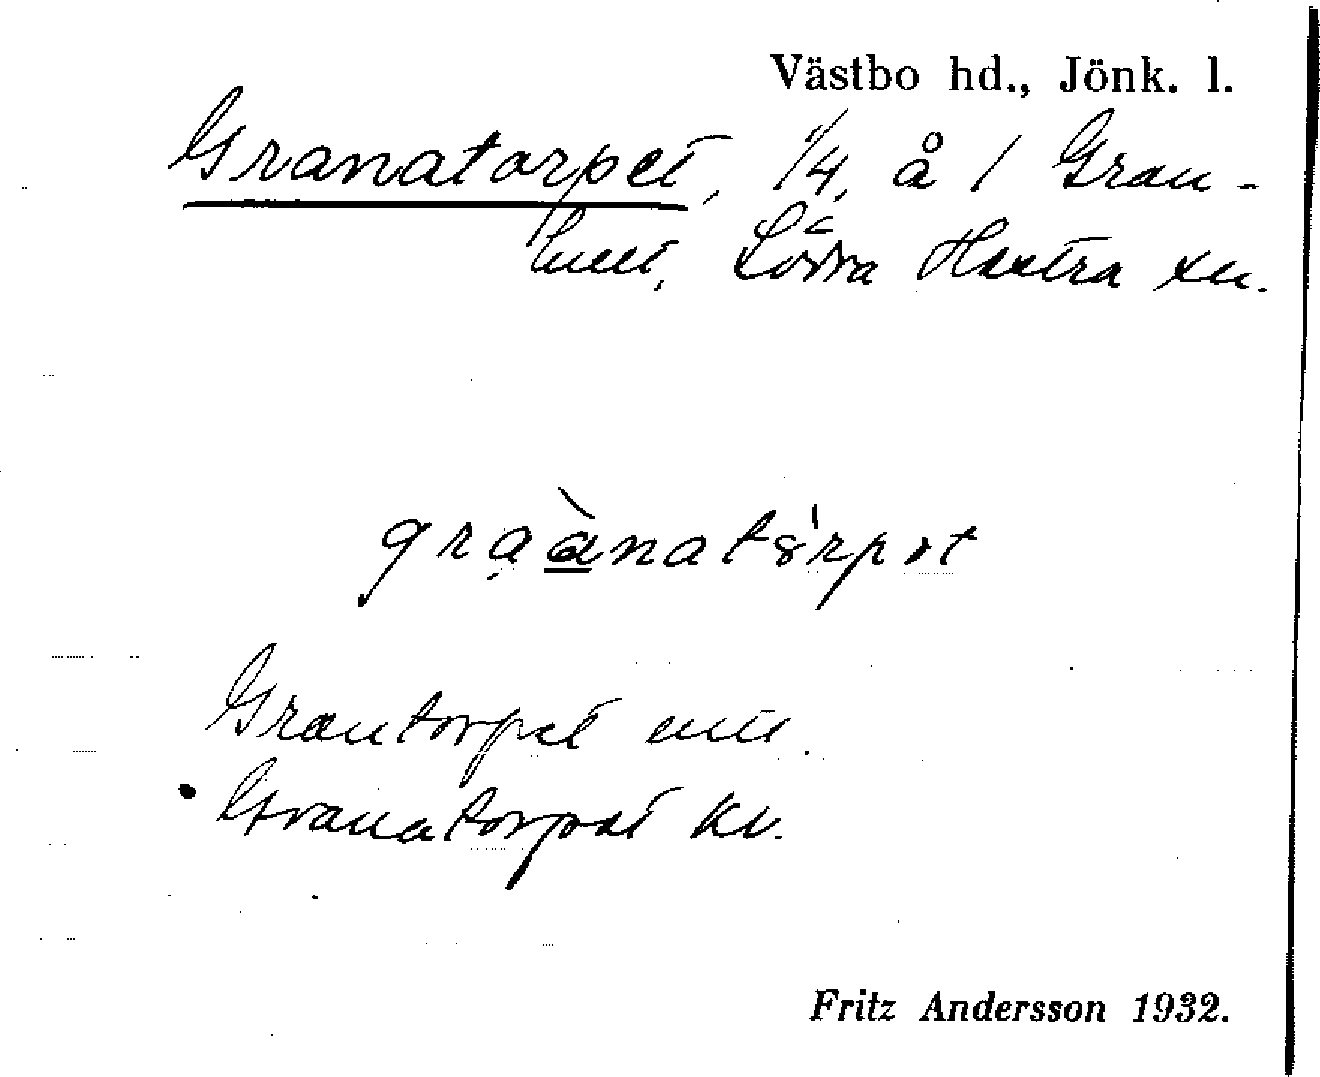 Västbo hd., Jönk. l.
Granatorpet, 1/4, å 1 Gran-
hult, Södra Hestra sn.
graànatòrpət
Grantorpet
Granatorpet kv.
Fritz Andersson 1932.